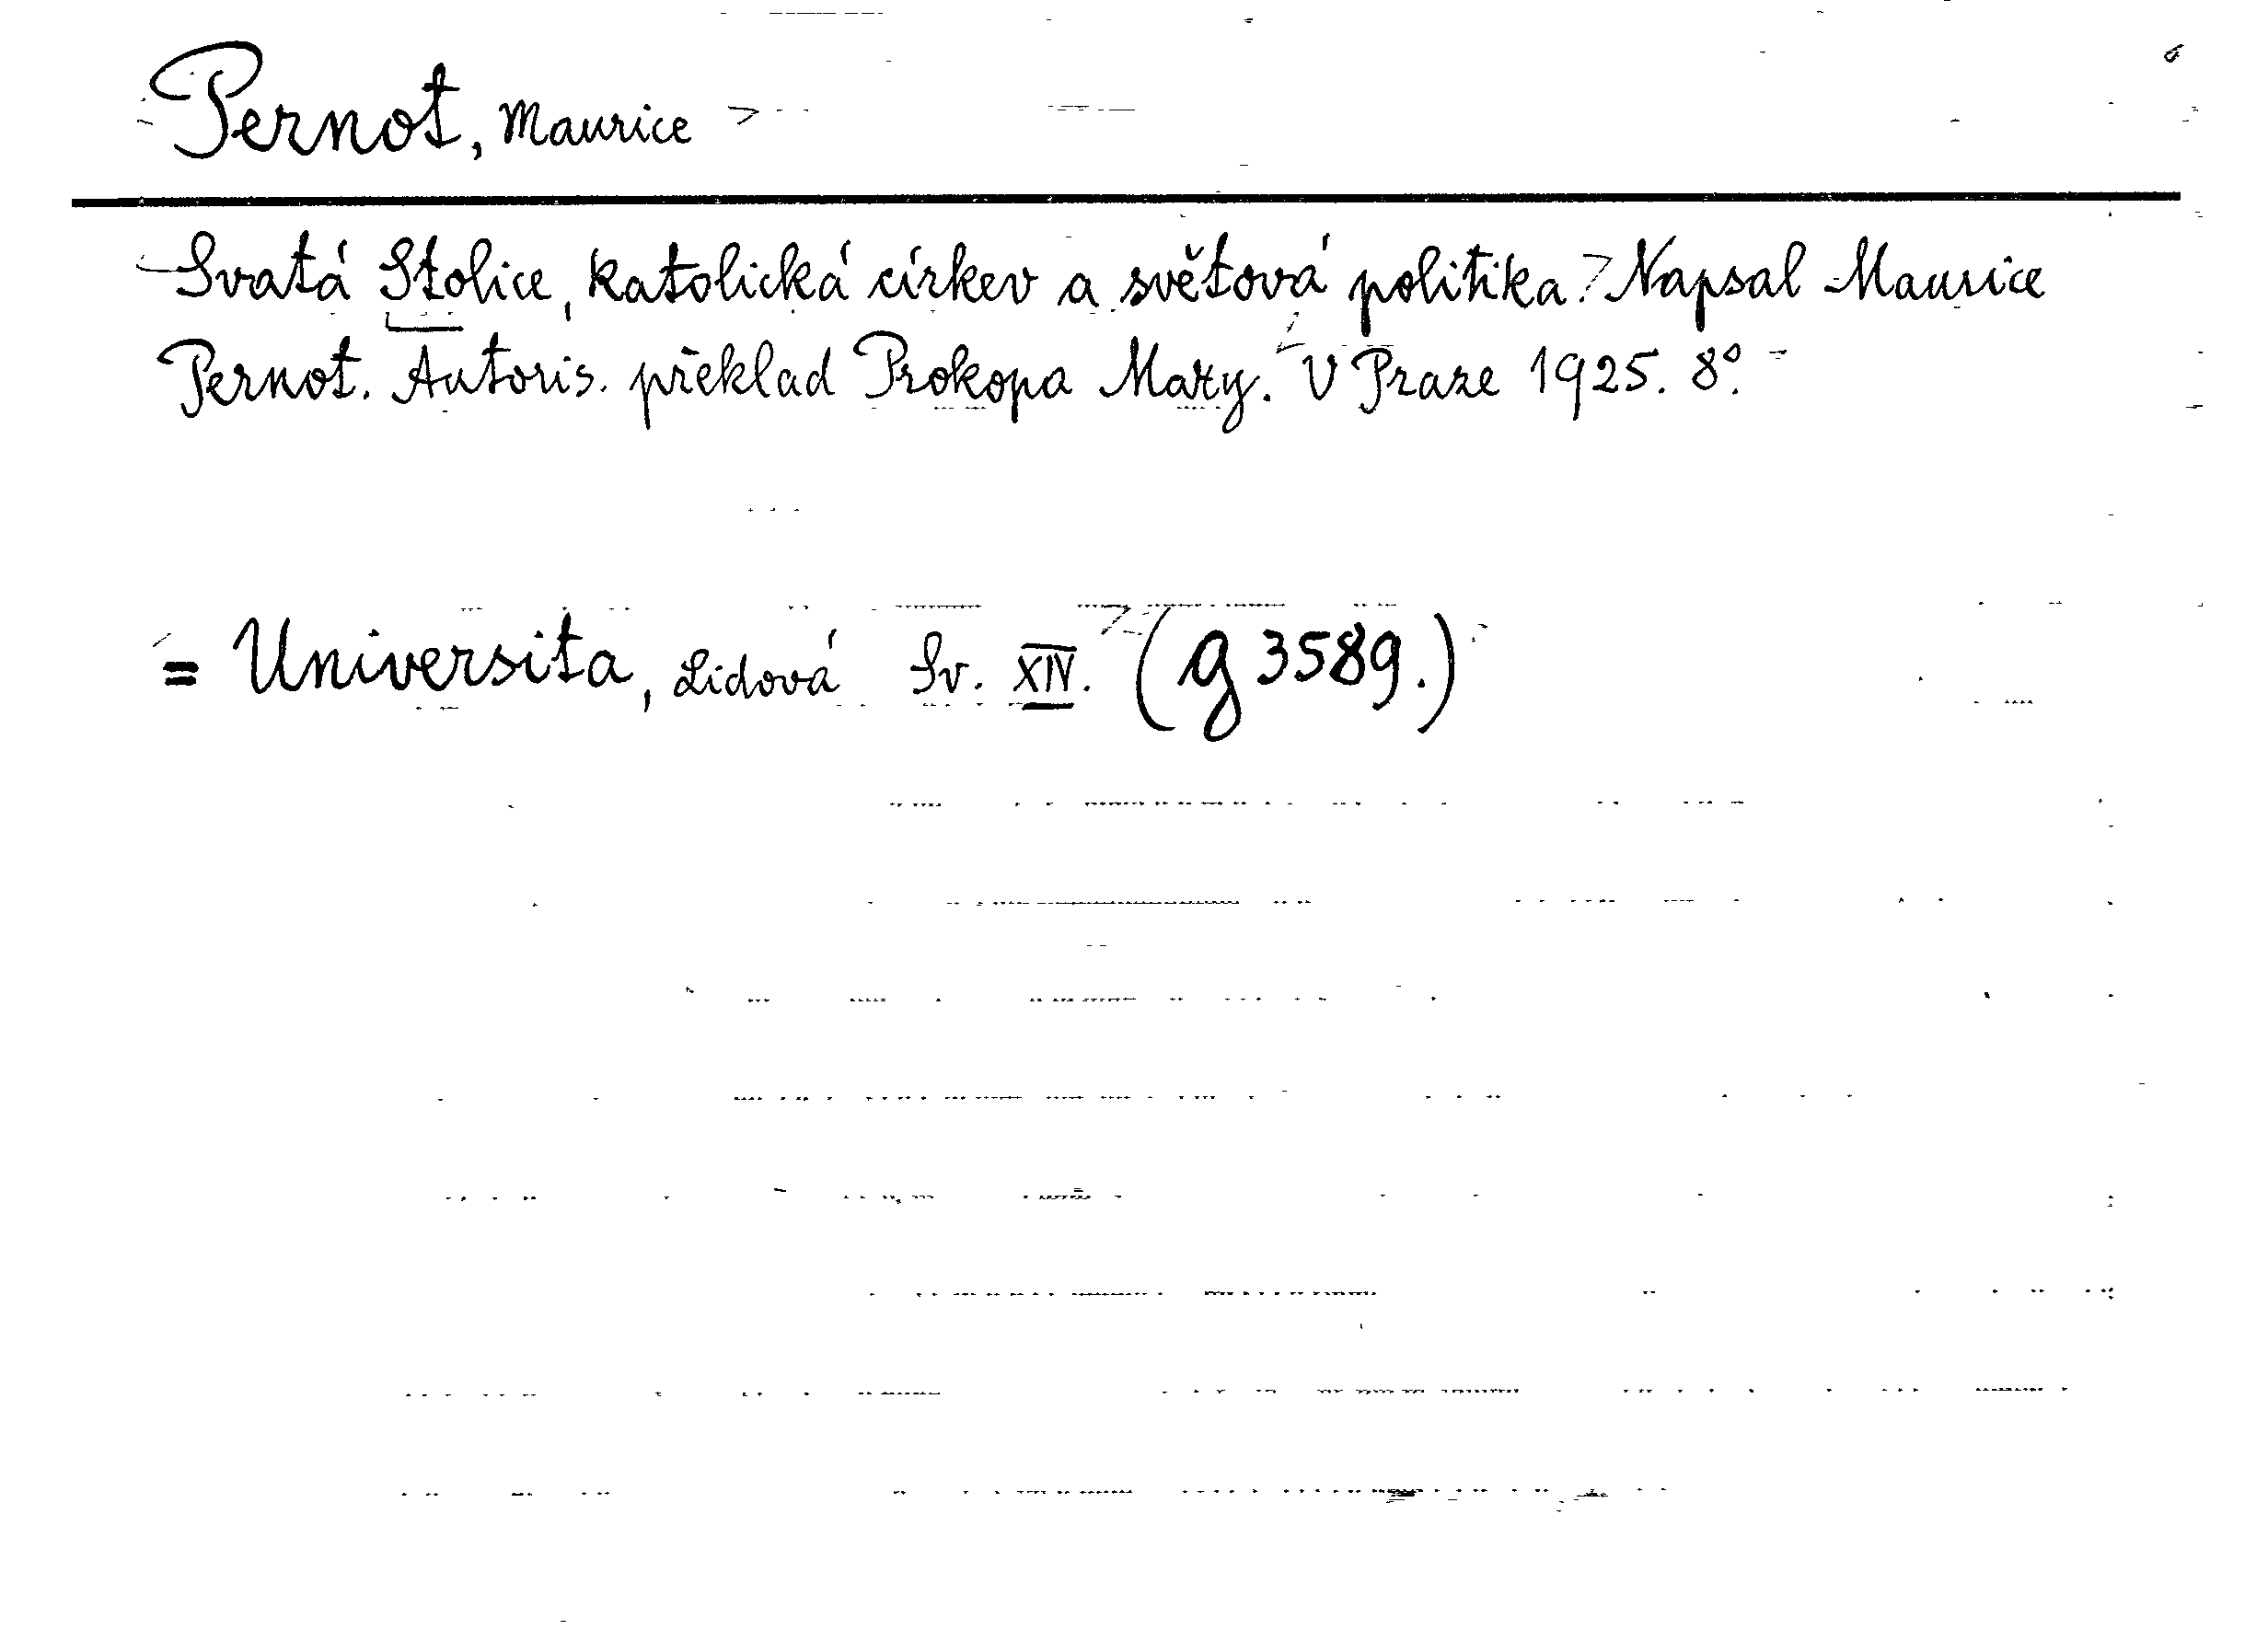 Pernot, Maurice
Svatá Stolice, katolická církev a světová politika. Napsal Maurice
Pernot. Autoris. překlad Prokopa Maxy. V Praze 1925. 8°.
= Universita, Lidová Sv. XIV. (g 3589.)